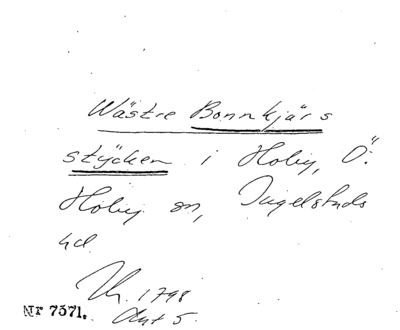 Wästre Bonnkjärs
stycken i Hoby, Ö.
Hoby sn, Ingelstads
hd
Uh. 1798
Akt 5.
Nr 7571.